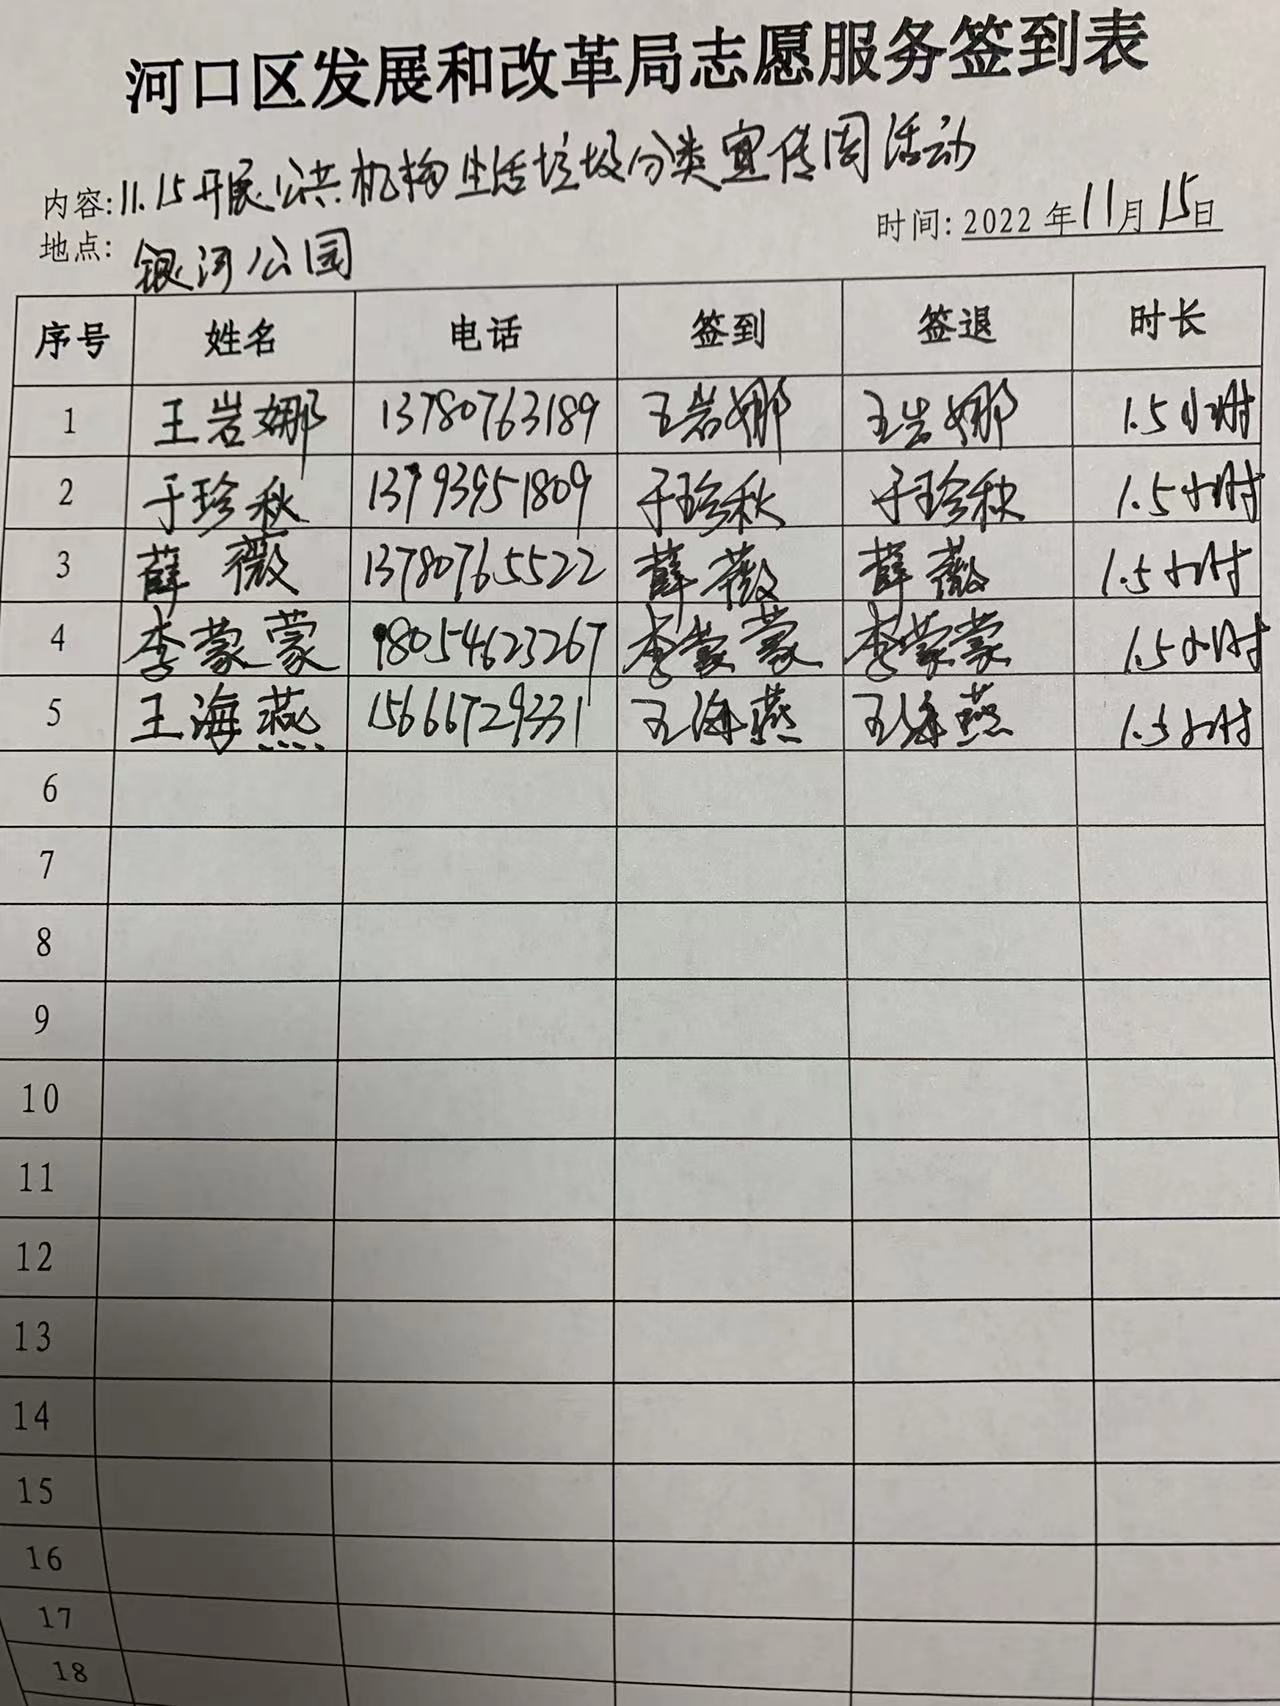 河口区发展和改革局志愿服务签到表
内容:11.15开展公共机构生活垃圾分类宣传周活动
时间:2022年11月15日
地点:银河公园
序号 姓名 电话 签到 签退 时长
1 王岩娜 13780763189 王岩娜 王岩娜 1.5小时
2 于珍秋 13793951809 于珍秋 于珍秋 1.5小时
3 薛薇 13780765522 薛薇 薛薇 1.5小时
4 李蒙蒙 18054623267 李蒙蒙 李蒙蒙 1.5小时
5 王海燕 15666729331 王海燕 王海燕 1.5小时
6
7
8
9
10
11
12
13
14
15
16
17
18